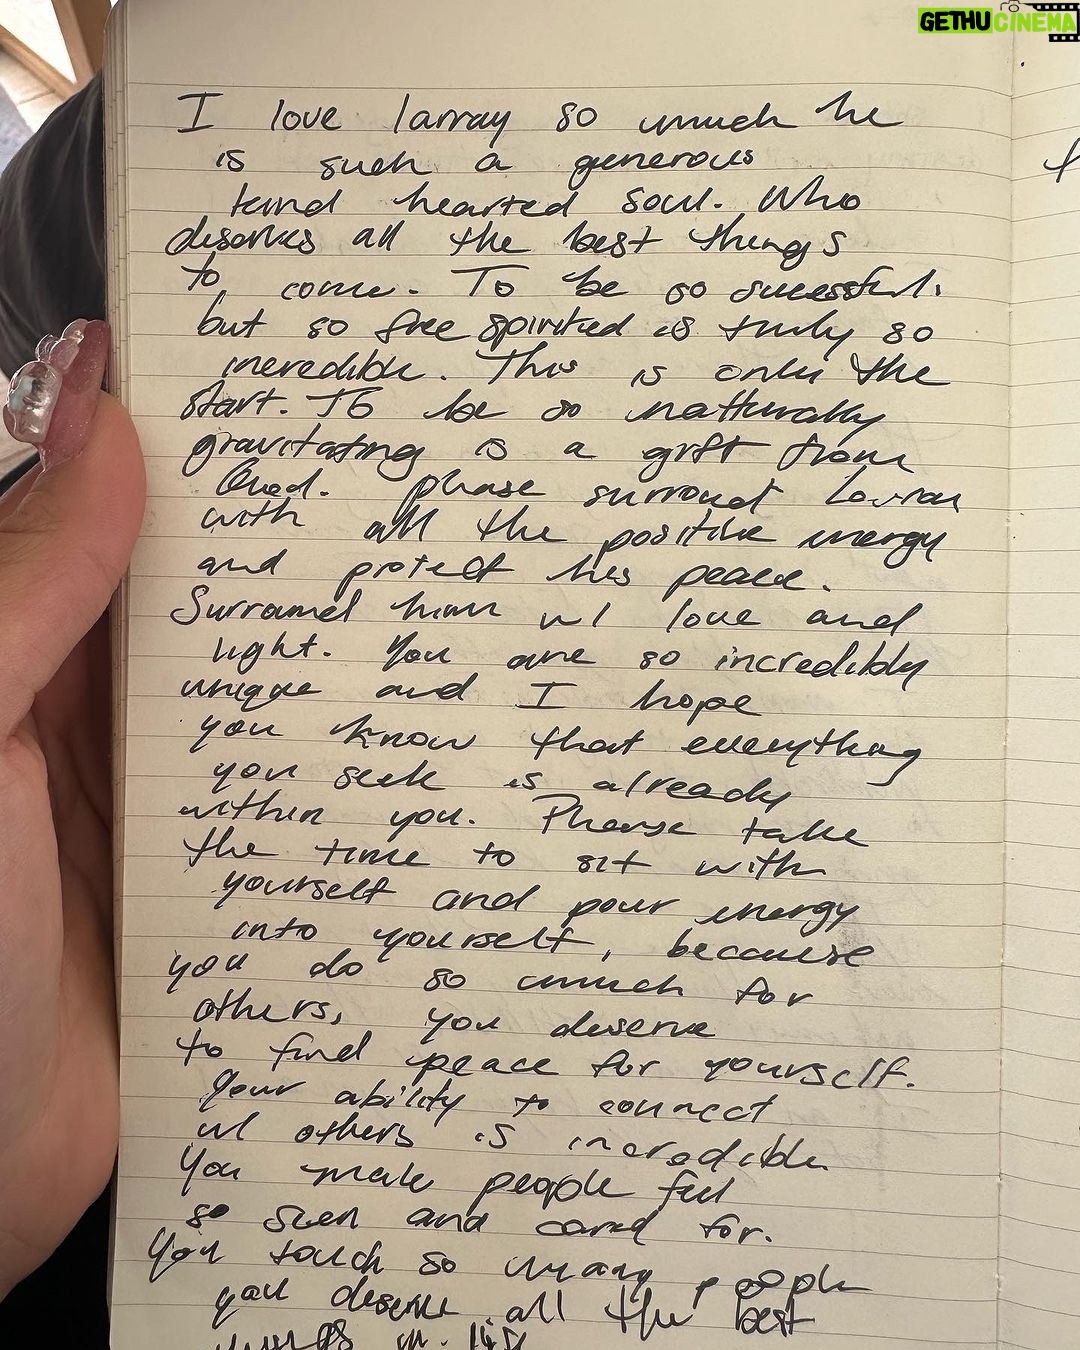 GETHUCINEMA
I love larray so much he
is such a generous
kind hearted soul. Who
deserves all the best things
to come. To be so sucessful.
but so free spirited is truly so
incredible. This is only the
start. To be so natturally
gravitating is a gift from
God. please surround
with all the positive energy
and protect his peace.
Surround him w/ love and
light. You are so incredibly
unique and I hope
you know that everything
you seek is already
within you. Please take
the time to sit with
yourself and pour energy
into yourself, because
you do so much for
others, you deserve
to find peace for yourself.
Your ability to connect
w/ others is incredible
You make people feel
so seen and cared for.
You touch so many people
you deserve all the best
things in life